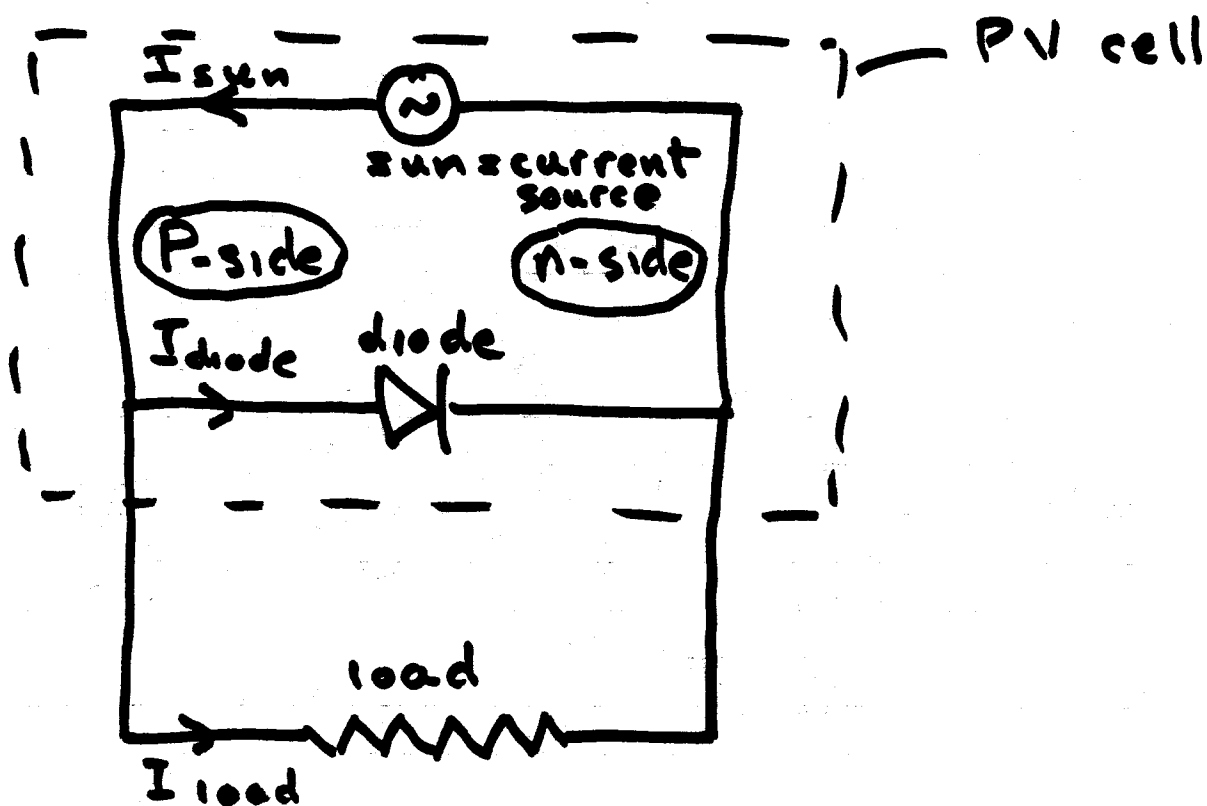 PV cell
I sun
sun = current
source
P-side
n-side
I diode
diode
load
I load